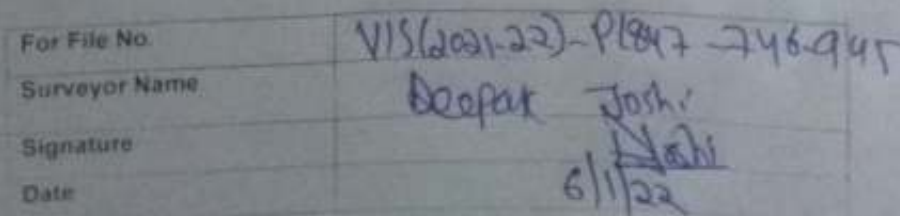 For File No. VIS(2021-22)-PL847-746-945
Surveyor Name Deepak Joshi
Signature Joshi
Date 6/1/22